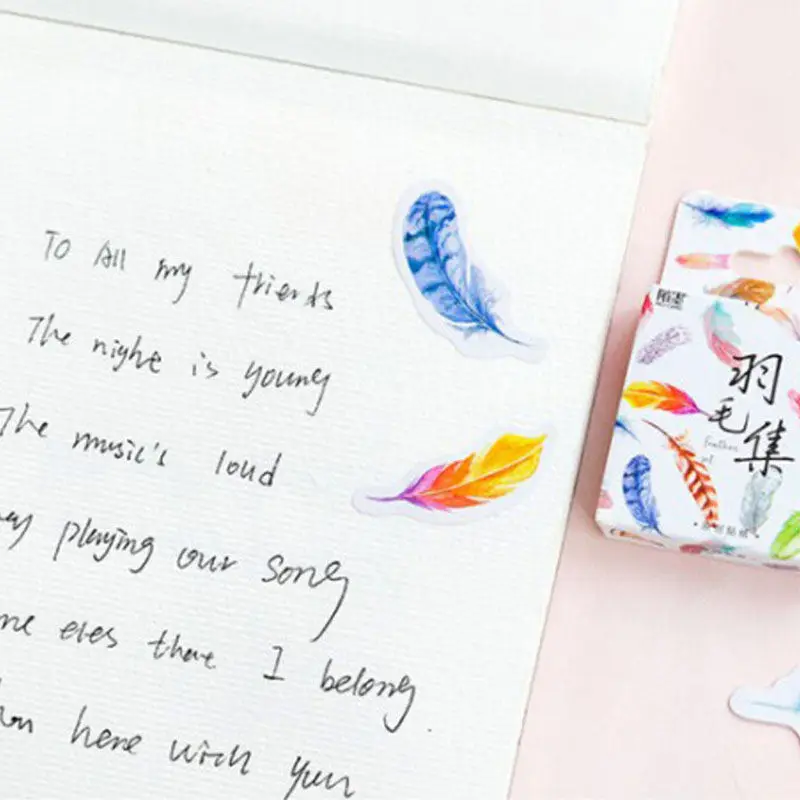 To All my friends
The night is young
The music's loud
playing our song
eles there I belong
here with you
陌墨
羽毛集
feather